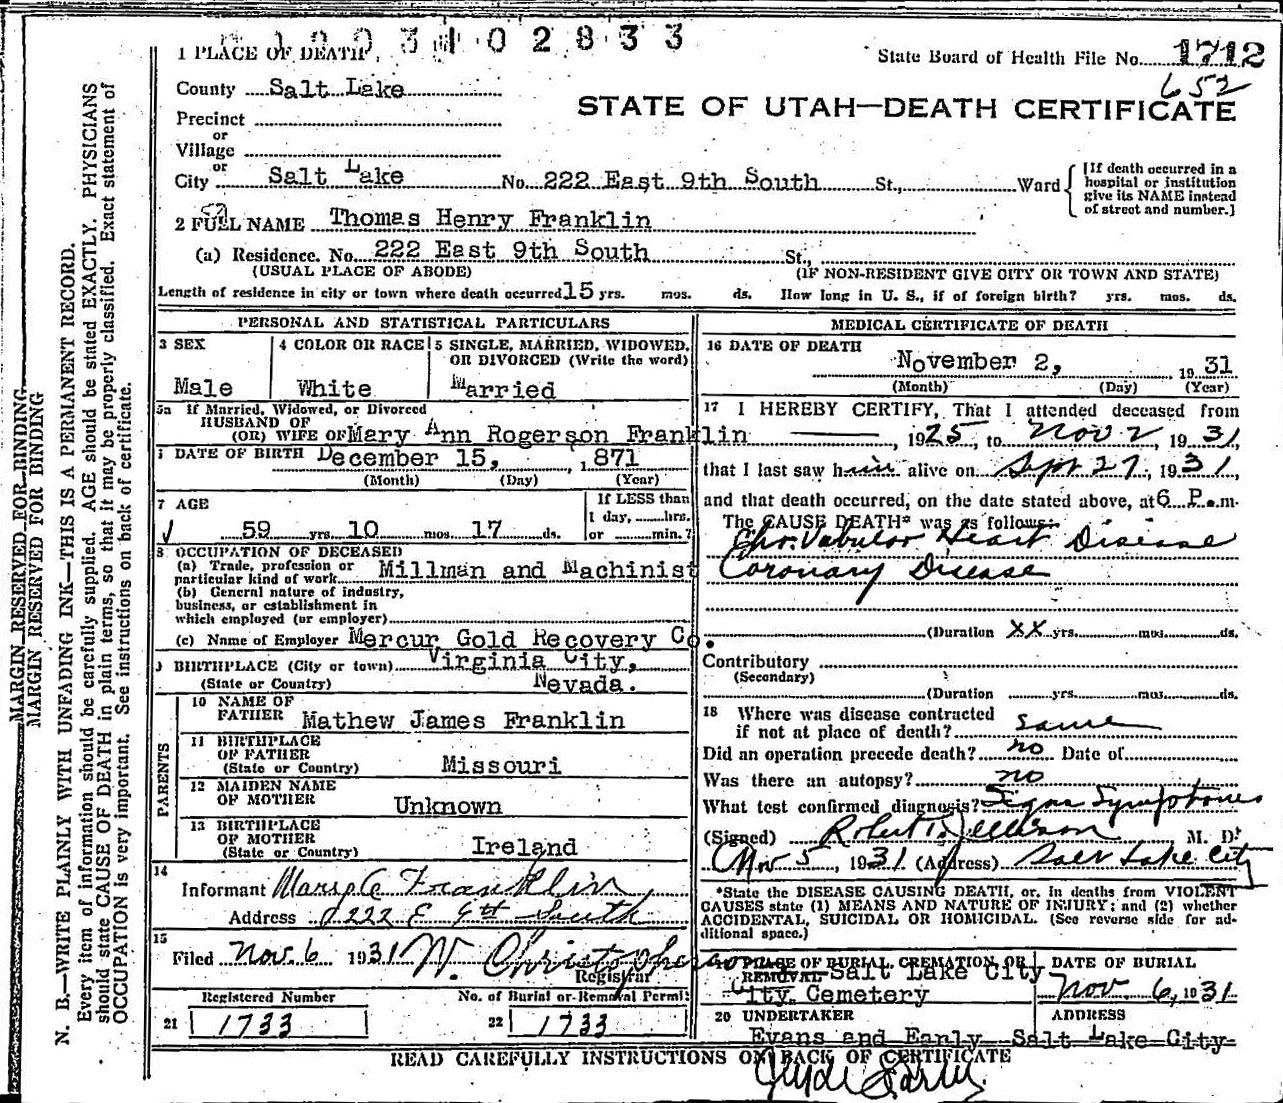 1931 02833
1 PLACE OF DEATH
State Board of Health File No. 1712
652
County Salt Lake
STATE OF UTAH—DEATH CERTIFICATE
Precinct
or
Village
or
City Salt Lake No. 222 East 9th South St., Ward
[If death occurred in a
hospital or institution
give its NAME instead
of street and number.]
2 FULL NAME Thomas Henry Franklin
(a) Residence. No. 222 East 9th South St.,
(USUAL PLACE OF ABODE) (IF NON-RESIDENT GIVE CITY OR TOWN AND STATE)
Length of residence in city or town where death occurred 15 yrs. mos. ds. How long in U. S., if of foreign birth? yrs. mos. ds.
PERSONAL AND STATISTICAL PARTICULARS
3 SEX
Male
4 COLOR OR RACE
White
5 SINGLE, MARRIED, WIDOWED,
OR DIVORCED (Write the word)
Married
5a If Married, Widowed, or Divorced
HUSBAND OF
(OR) WIFE OF Mary Ann Rogerson Franklin
DATE OF BIRTH December 15, 1871
(Month) (Day) (Year)
7 AGE
59 yrs. 10 mos. 17 ds.
If LESS than
1 day, hrs.
or min.?
8 OCCUPATION OF DECEASED
(a) Trade, profession or
particular kind of work Millman and Machinist
(b) General nature of industry,
business, or establishment in
which employed (or employer)
(c) Name of Employer Mercur Gold Recovery Co.
BIRTHPLACE (City or town) Virginia City,
(State or Country) Nevada.
PARENTS
10 NAME OF
FATHER Mathew James Franklin
11 BIRTHPLACE
OF FATHER
(State or Country) Missouri
12 MAIDEN NAME
OF MOTHER Unknown
13 BIRTHPLACE
OF MOTHER
(State or Country) Ireland
14
Informant Mary A Franklin
Address 222 E 9th South
15
Filed Nov. 6 1931 W. Christopherson
Registrar
Registered Number
21 1733
No. of Burial or Removal Permit
22 1733
MEDICAL CERTIFICATE OF DEATH
16 DATE OF DEATH
November 2, 1931
(Month) (Day) (Year)
17 I HEREBY CERTIFY, That I attended deceased from
, 1925, to Nov 2, 1931,
that I last saw him alive on Sept 27, 1931,
and that death occurred, on the date stated above, at 6 P.m
The CAUSE DEATH* was as follows:
Chr. Valvular Heart Disease
Coronary Disease
(Duration XX yrs. mos. ds.
Contributory
(Secondary)
(Duration yrs. mos. ds.
18 Where was disease contracted
if not at place of death? same
Did an operation precede death? no Date of
Was there an autopsy? no
What test confirmed diagnosis? Signs Symptoms
(Signed) Robert T. Jellison M. D.
Nov 5, 1931 (Address) Salt Lake City
*State the DISEASE CAUSING DEATH, or, in deaths from VIOLENT
CAUSES state (1) MEANS AND NATURE OF INJURY; and (2) whether
ACCIDENTAL, SUICIDAL OR HOMICIDAL. (See reverse side for ad-
ditional space.)
PLACE OF BURIAL, CREMATION, OR
REMOVAL Salt Lake City
City Cemetery
DATE OF BURIAL
Nov. 6, 1931
20 UNDERTAKER ADDRESS
Evans and Early Salt Lake City
READ CAREFULLY INSTRUCTIONS ON BACK OF CERTIFICATE
Clyde Early
MARGIN RESERVED FOR BINDING
MARGIN RESERVED FOR BINDING
N. B.—WRITE PLAINLY WITH UNFADING INK—THIS IS A PERMANENT RECORD.
Every item of information should be carefully supplied. AGE should be stated EXACTLY. PHYSICIANS
should state CAUSE OF DEATH in plain terms, so that it may be properly classified. Exact statement of
OCCUPATION is very important. See instructions on back of certificate.